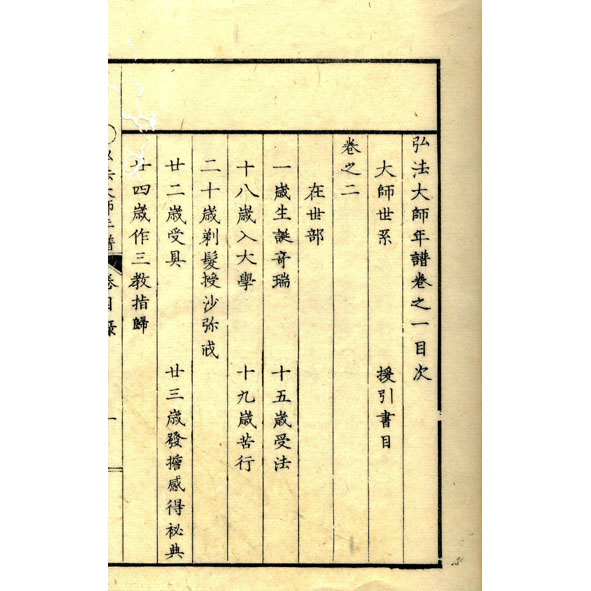 弘法大師年譜卷之一目次
大師世系　援引書目
卷之二
在世部
一歲生誕奇瑞　十五歲受法
十八歲入大學　十九歲苦行
二十歲剃髮授沙弥戒
廿二歲受具　廿三歲發擔感得祕典
廿四歲作三教指歸
大師年譜　卷目錄　一